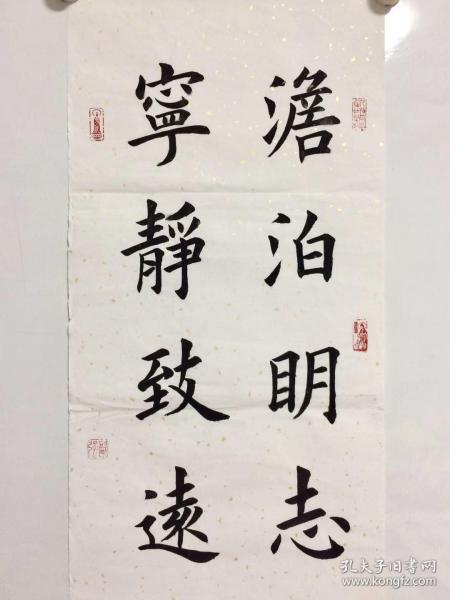 澹泊明志
寧靜致遠
孔夫子旧书网
www.kongfz.com